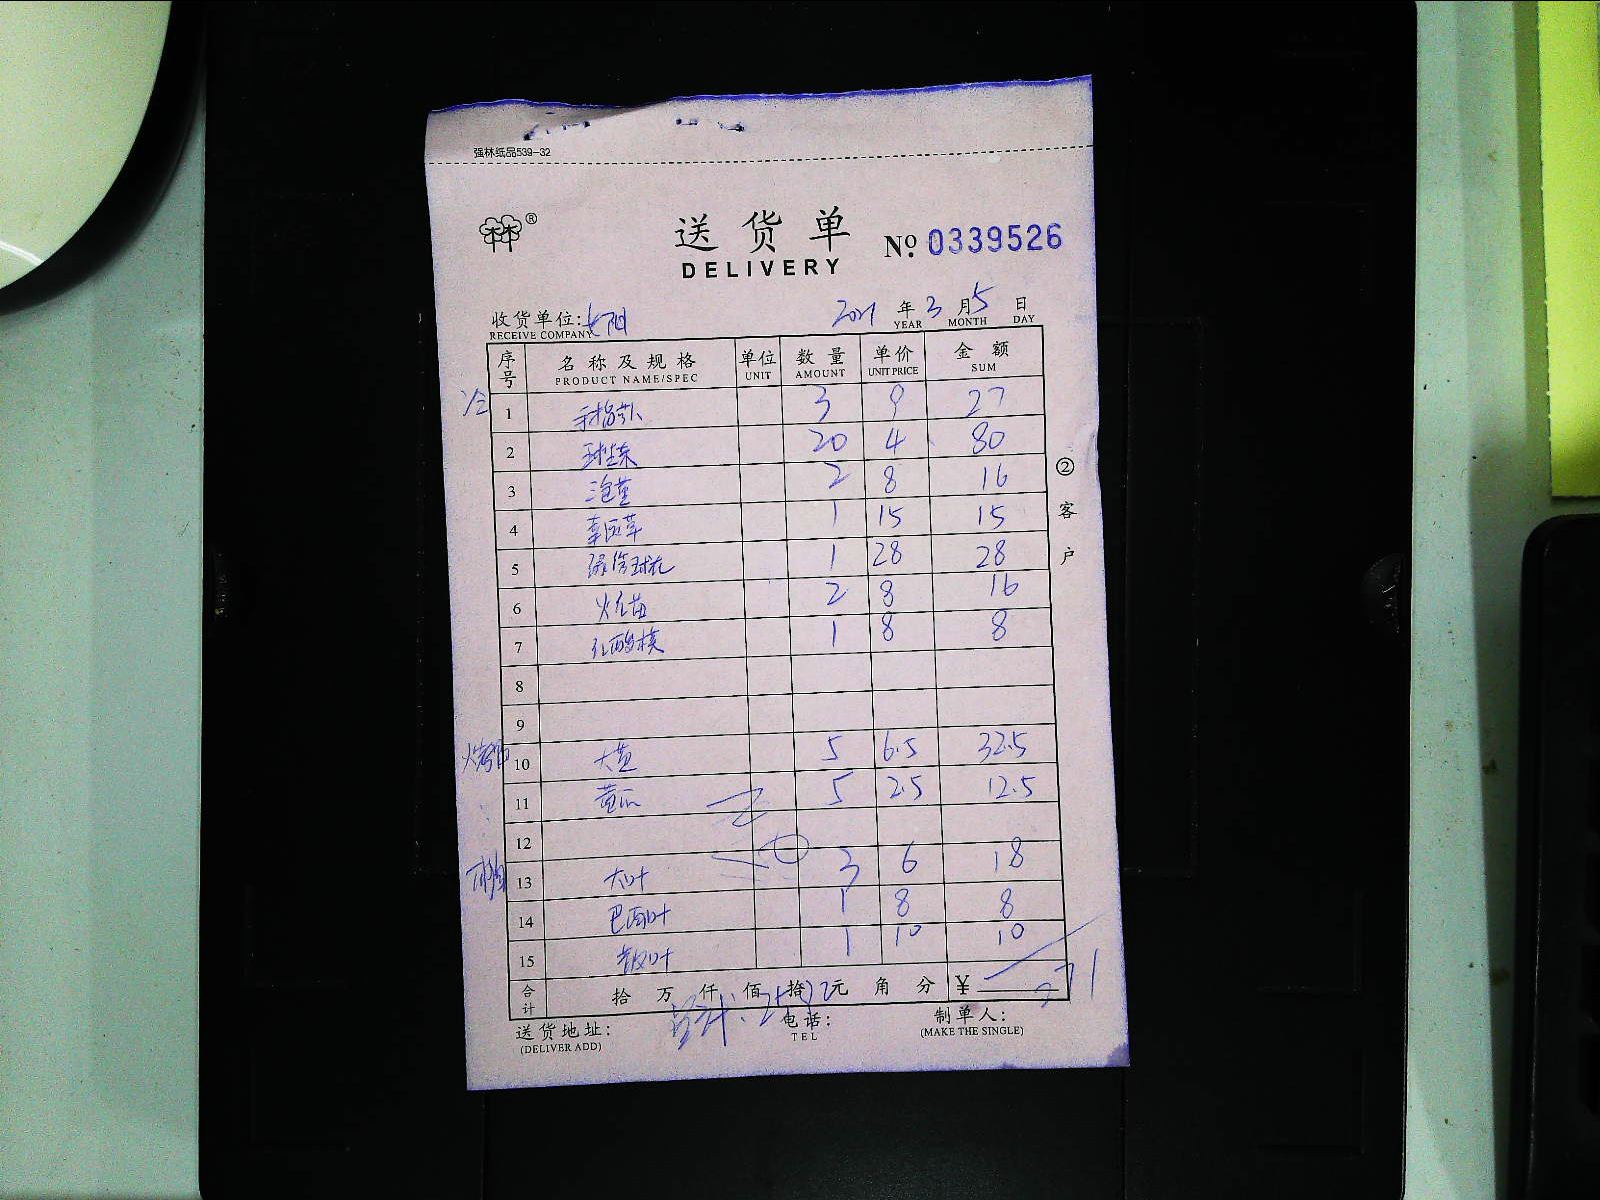 强林纸品539-32
送货单
DELIVERY
№ 0339526
收货单位:
RECEIVE COMPANY
2021 年 3 月 5 日
YEAR MONTH DAY
序号 名称及规格 单位 数量 单价 金额
PRODUCT NAME/SPEC UNIT AMOUNT UNIT PRICE SUM
冷
1 手指萝卜 3 9 27
2 球生菜 20 4 80
3 泡茎 2 8 16
4 1 15 15
5 1 28 28
6 2 8 16
7 1 8 8
8
9
10 大 5 6.5 32.5
11 黄瓜 5 2.5 12.5
12
13 大叶 3 6 18
14 巴西叶 1 8 8
15 叶 1 10 10
合计 拾 万 仟 佰 拾 元 角 分 ¥ 271
送货地址:
(DELIVER ADD)
电话:
TEL
制单人:
(MAKE THE SINGLE)
②客户